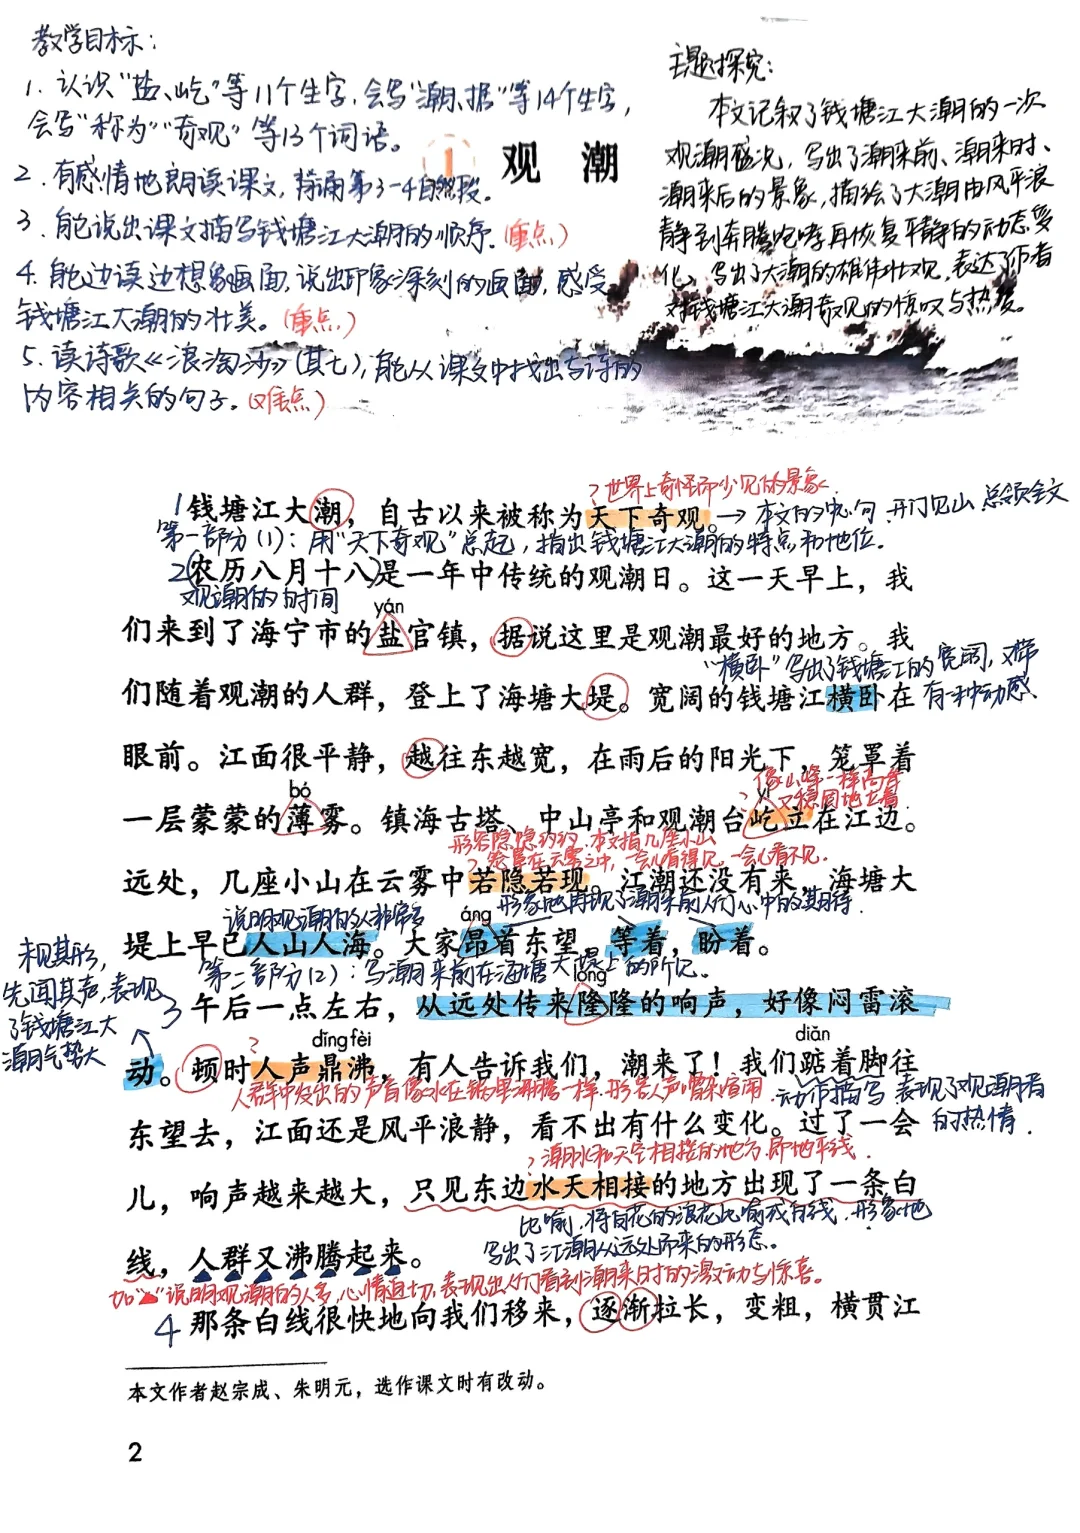 教学目标：
1. 认识“盐、屹”等11个生字，会写“潮、据”等14个生字，
会写“称为”“奇观”等13个词语。
2. 有感情地朗读课文，背诵第3-4自然段。
3. 能说出课文描写钱塘江大潮的顺序。（重点）
4. 能边读边想象画面，说出印象深刻的画面，感受
钱塘江大潮的壮美。（重点）
5. 读诗歌《浪淘沙》（其七），能从课文中找出与诗的
内容相关的句子。（难点）
主题探究：
本文记叙了钱塘江大潮的一次
观潮盛况，写出了潮来前、潮来时、
潮来后的景象，描绘了大潮由风平浪
静到奔腾咆哮再恢复平静的动态变
化，写出了大潮的雄伟壮观，表达了作者
对钱塘江大潮奇观的惊叹与热爱。
1 观潮
？世界上奇怪而少见的景象
1钱塘江大潮，自古以来被称为天下奇观。→本文的中心句，开门见山 总领全文
第一部分（1）：用“天下奇观”总起，指出钱塘江大潮的特点和地位.
2农历八月十八是一年中传统的观潮日。这一天早上，我
观潮的时间
yán
们来到了海宁市的盐官镇，据说这里是观潮最好的地方。我
“横卧”写出了钱塘江的宽阔，又带
们随着观潮的人群，登上了海塘大堤。宽阔的钱塘江横卧在
有一种动感
眼前。江面很平静，越往东越宽，在雨后的阳光下，笼罩着
？像山峰一样高耸
bó yì
又稳固地立着
一层蒙蒙的薄雾。镇海古塔、中山亭和观潮台屹立在江边。
形容隐隐约约.本文指几座小山
？笼罩在云雾之中，一会儿看得见，一会儿看不见.
远处，几座小山在云雾中若隐若现。江潮还没有来，海塘大
说明观潮的人非常多
áng
形象地再现了潮来前人们心中的期待.
堤上早已人山人海。大家昂首东望，等着，盼着。
第二部分（2）：写潮来前在海塘大堤上的所见.
lóng
未见其形，
先闻其声，表现
了钱塘江大
潮气势大
3 午后一点左右，从远处传来隆隆的响声，好像闷雷滚
dǐng fèi diǎn
？
动。顿时人声鼎沸，有人告诉我们，潮来了！我们踮着脚往
人群中发出的声音像水在锅里沸腾一样.形容人声嘈杂喧闹.
动作描写 表现了观潮者
的热情.
东望去，江面还是风平浪静，看不出有什么变化。过了一会
？潮水和天空相接的地方.即地平线.
儿，响声越来越大，只见东边水天相接的地方出现了一条白
比喻，将白花的浪花比喻成白线.形象地
写出了江潮从远处而来的形态。
线，人群又沸腾起来。
加“▲”说明观潮的人多，心情迫切，表现出人们看到潮来时的激动与惊喜。
4 那条白线很快地向我们移来，逐渐拉长，变粗，横贯江
本文作者赵宗成、朱明元，选作课文时有改动。
2